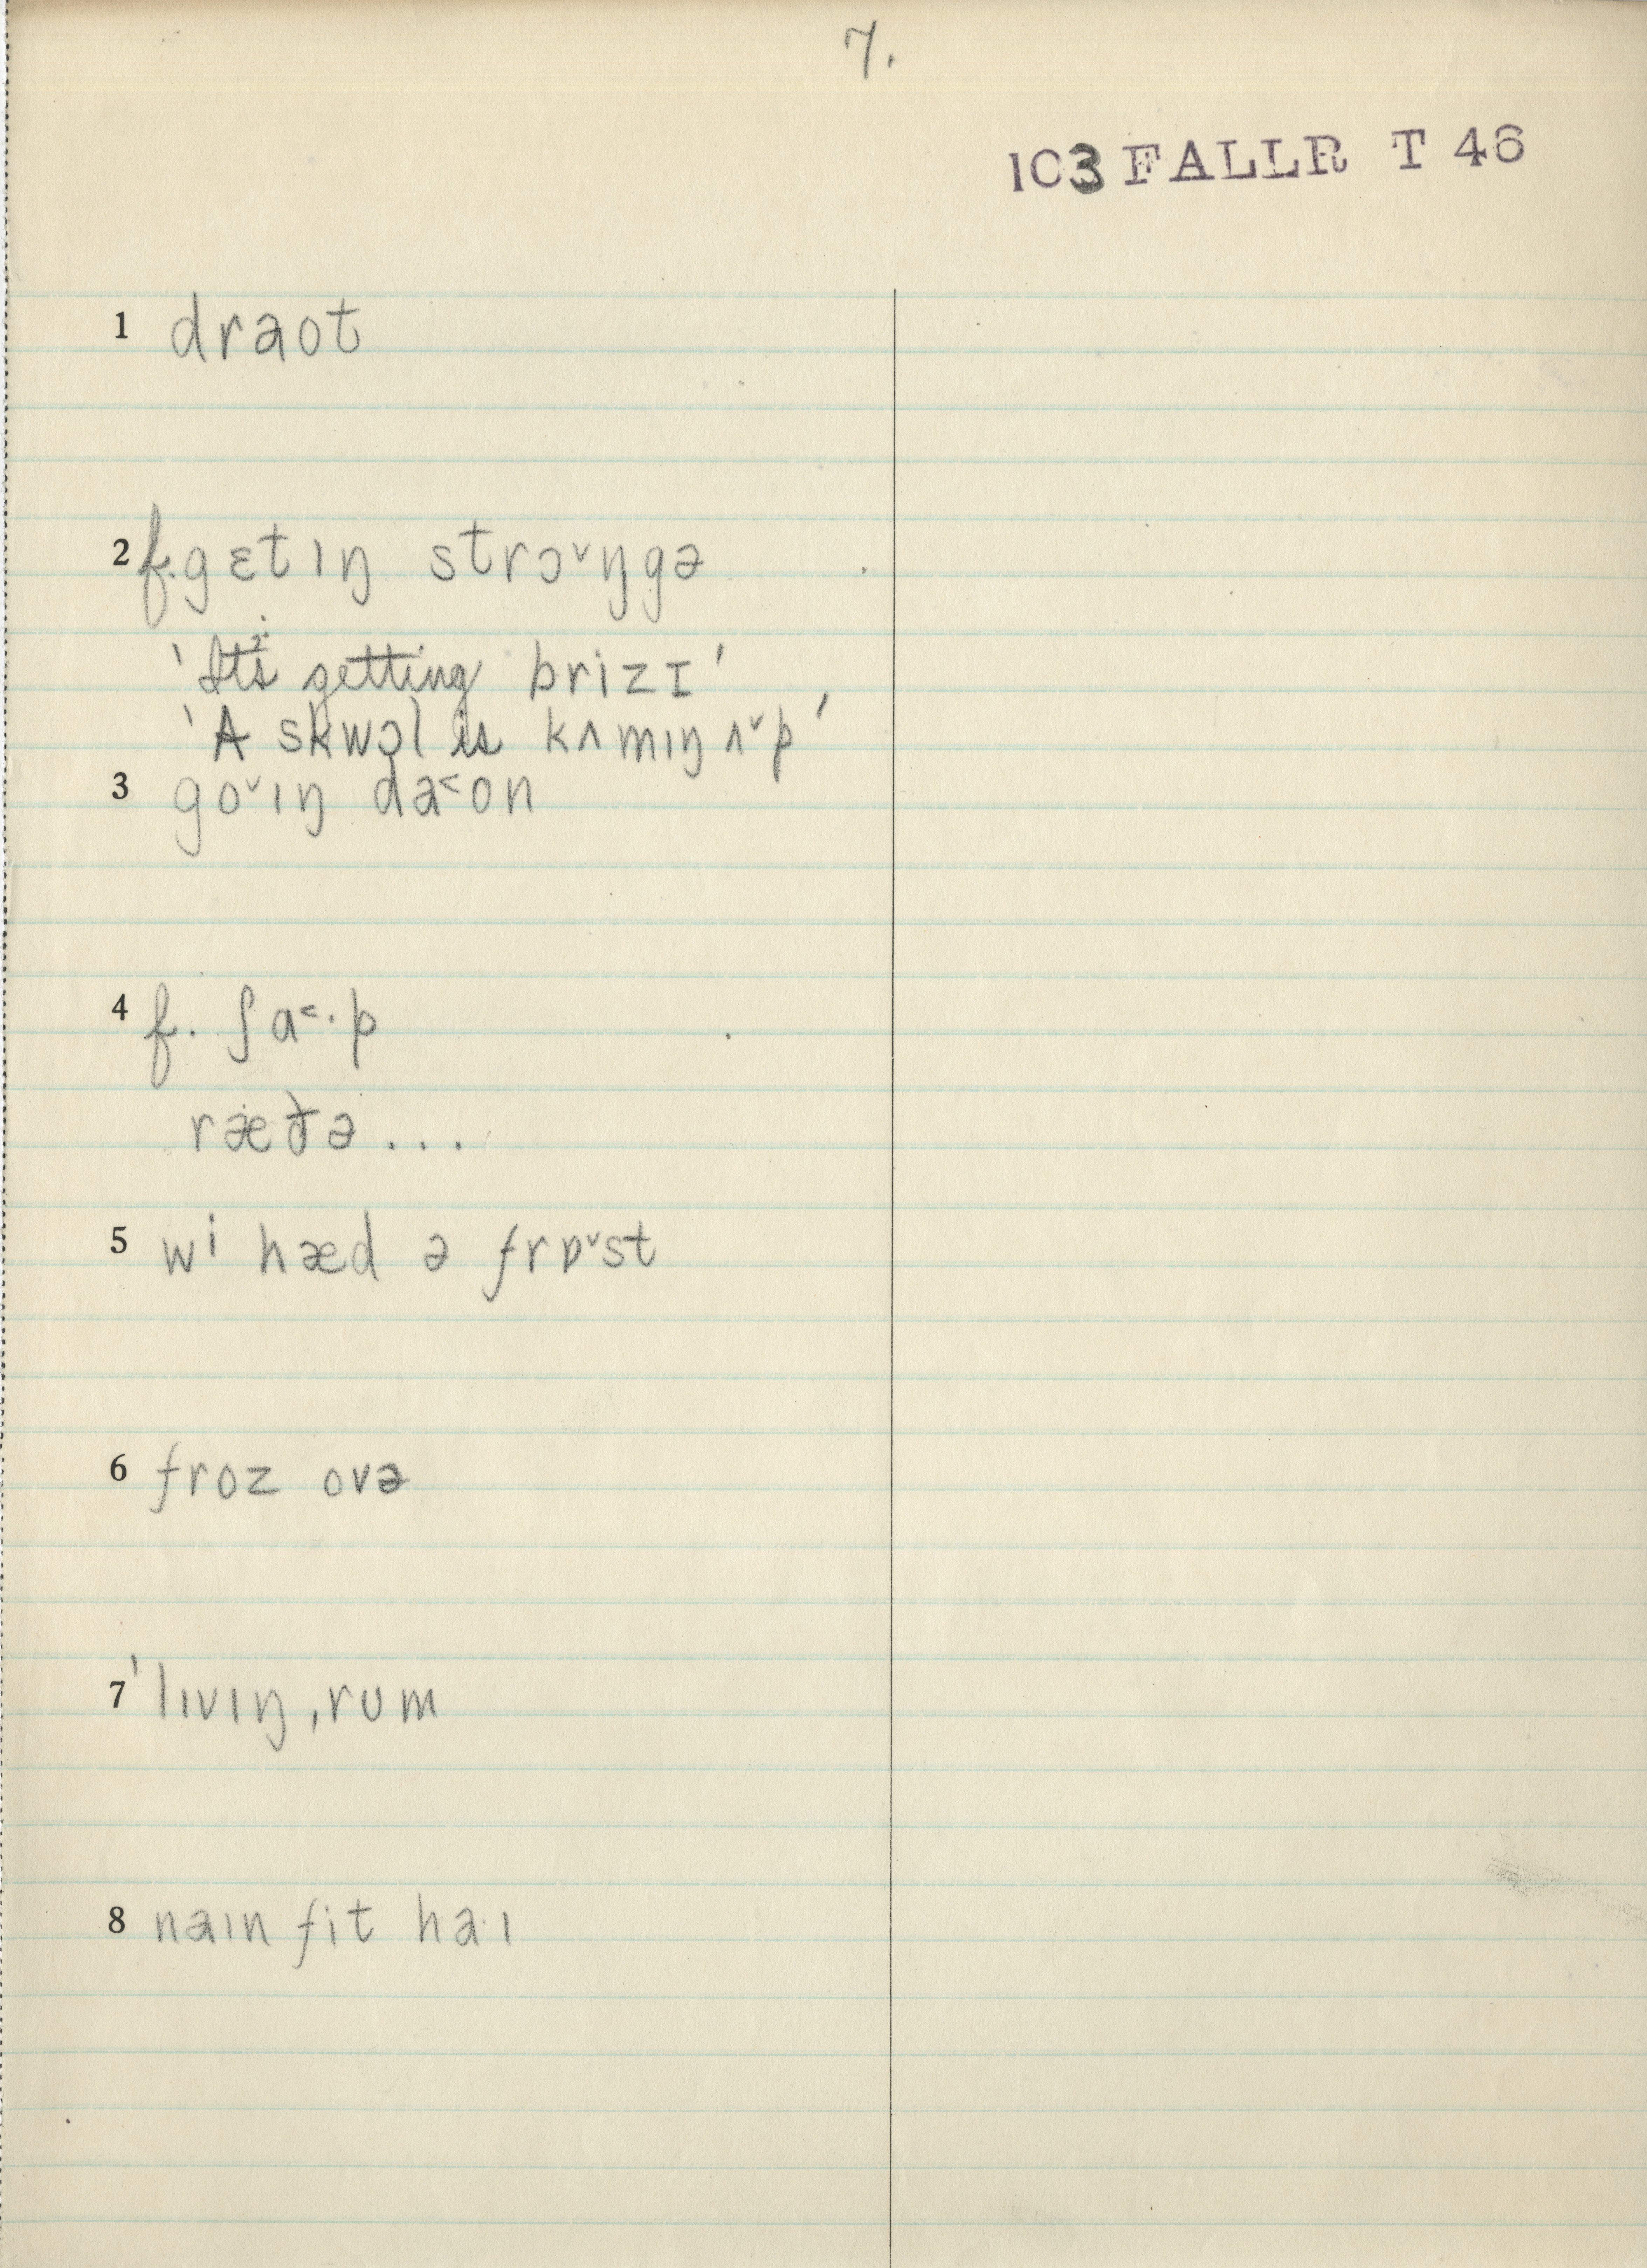 7.
103 FALLR T 46
1 draot
2 f. gɛtıŋ strɔˇŋgə
'It's getting brizɪ'
'A skwɔl is kʌmıŋ ʌˇp'
3 goˇıŋ da˂on
4 f. ʃɑ˂·p
ræðə ...
5 wi hæd ə frɒˇst
6 froz ovə
7 'lıvıŋ ,rum
8 naın fit ha·ı